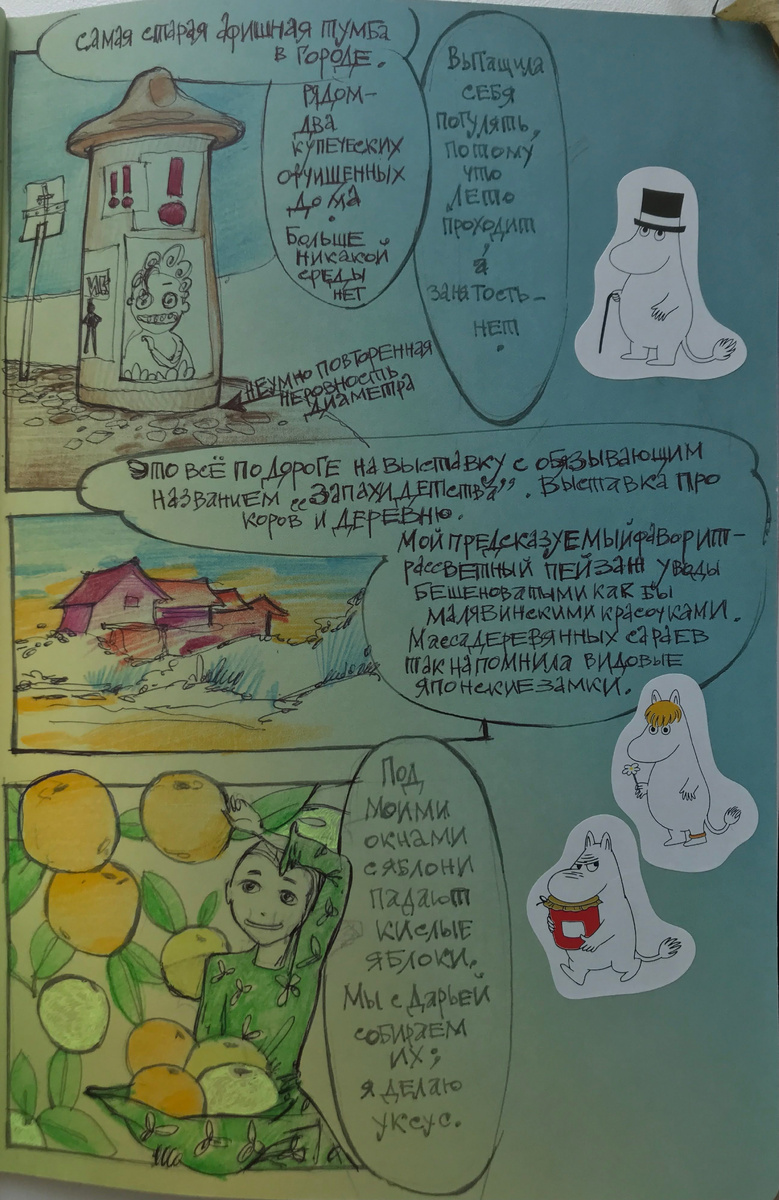 самая старая афишная тумба
в городе.
Рядом–
два
купеческих
очищенных
дома
.
Больше
никакой
среды
нет
Вытащила
себя
погулять,
потому
что
лето
проходит
, а
занятость–
нет
.
!!
!
неумно повторенная
неровность
диаметра
Это всё по дороге на выставку с обязывающим
названием „Запахи детства”. Выставка про
коров и деревню.
Мой предсказуемый фаворит–
рассветный пейзаж у воды
бешеноватыми как бы
малявинскими красочками.
Масса деревянных сараев
так напомнила видовые
японские замки.
Под
моими
окнами
с яблони
падают
кислые
яблоки.
Мы с Дарьей
собираем
их;
я делаю
уксус.